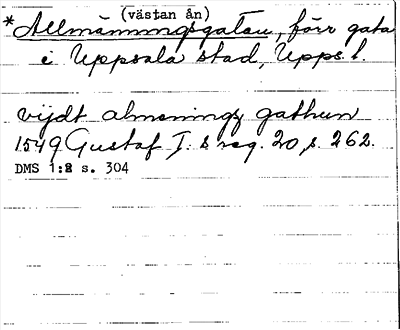 (västan ån)
*Allmänningsgatan, förr gata
i Uppsala stad, Upps. l.
vijdt almenings gathun
1549 Gustaf I:s reg. 20, s. 262.
DMS 1:2 s. 304